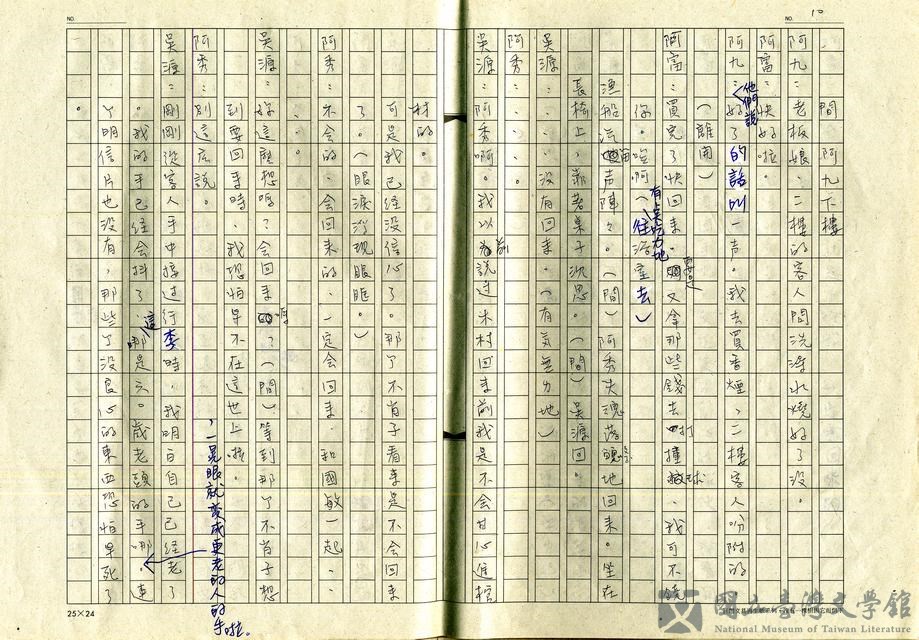 NO. 10
間 阿九下樓
阿九：老板娘、二樓的客人問洗澡水燒好了沒。
阿富：快好啦。
阿九：好了他們說的話叫一声。我去買香煙、二樓客人吩咐的
（離開）
阿富：買完了快回來。又拿那些錢去打撞球、我可不饒
你。唉啊（有夠吃力地往浴室去）
漁船汽笛声陣々。（間）阿秀失魂落魄地回來。坐在
長椅上，靠著桌子沈思。（間）吳源回。
吳源：……沒有回來。（有気無力地）
阿秀：……。
吳源：阿秀啊。我以前說過木村回來前我是不会甘心進棺
材的。
可是我已經沒信心了。那了不肖子看來是不会回來
了。（眼淚浮現眼眶。）
阿秀：不会的、会回來的、一定会回來、和國敏一起、
、。
吳源：妳這麼想嗎？会回來嗎？（間）等到那了不肖子想
到要回來時、我恐怕早不在這世上啦。
阿秀：別這店說。
吳源：剛剛從客人手中接过行李時，我明白自己已經老了
。我的手已經会抖了、這那是六。歲老頭的手哪。連
，一晃眼就变成更老的人的手啦。
丫明信片也没有，那些了没良心的東西恐怕早死了
。
NO.
25×24
國立臺灣文學館
National Museum of Taiwan Literature